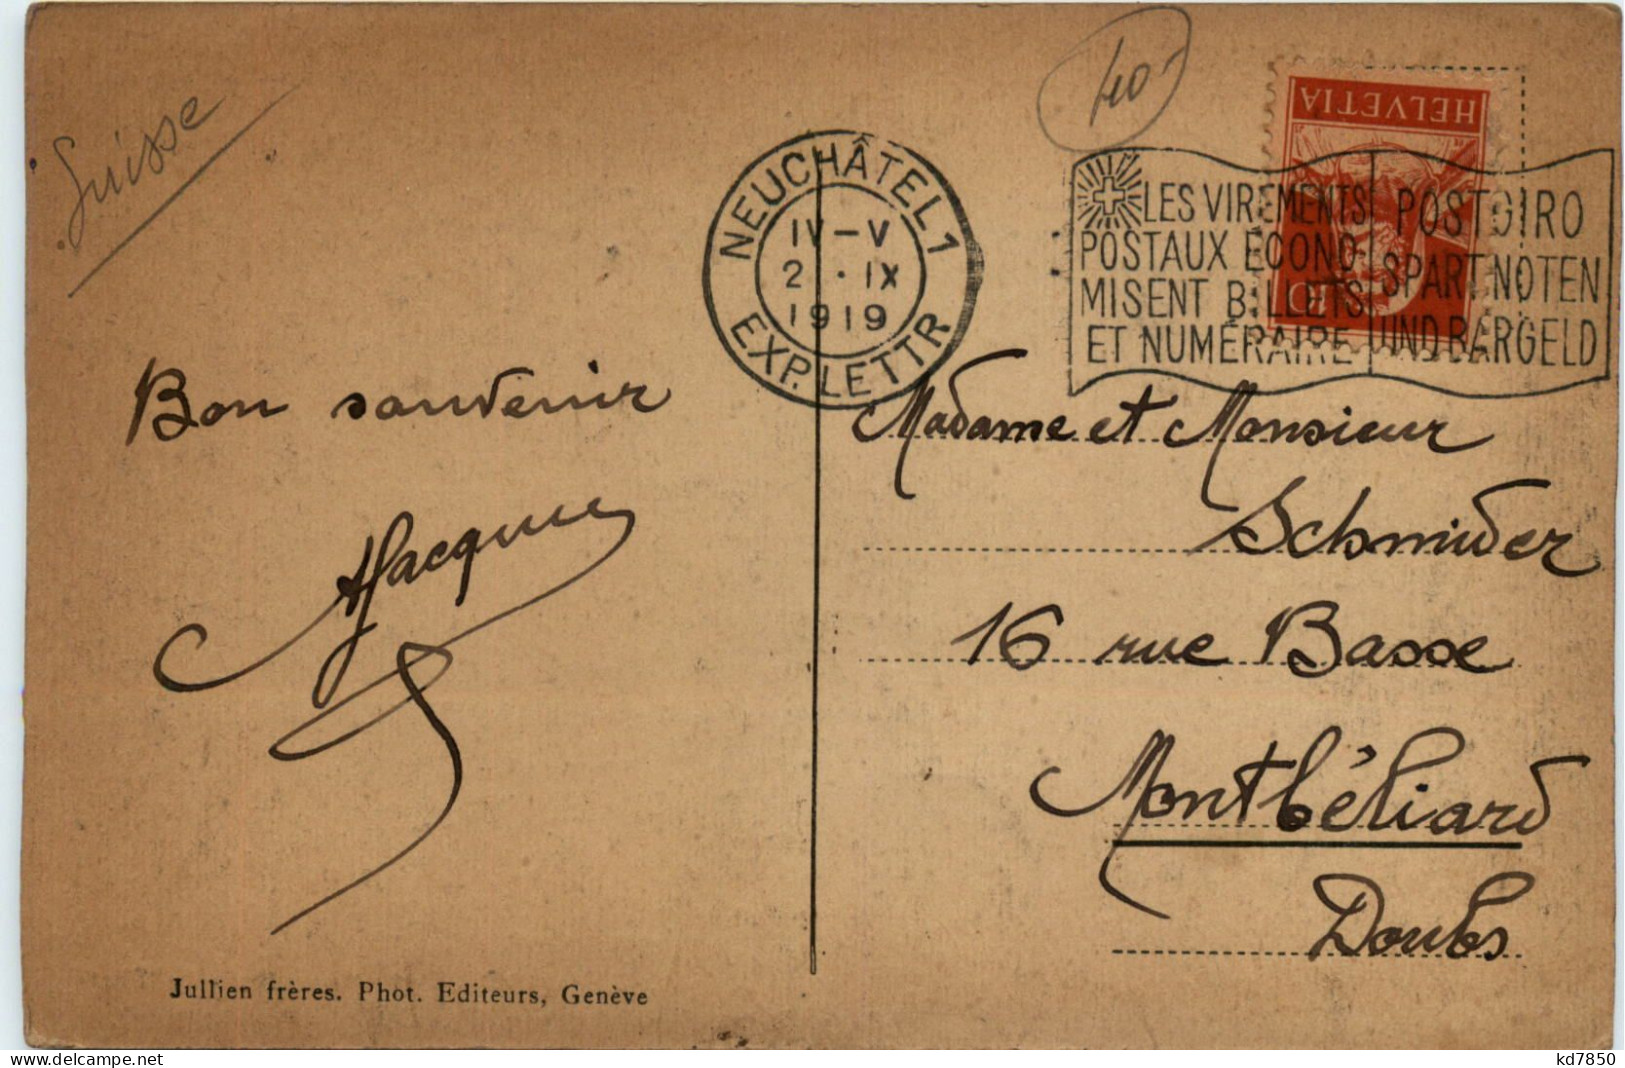 Suisse
40
HELVETIA
NEUCHÂTEL 1
IV–V
2 . IX
1919
EXP. LETTR
LES VIREMENTS
POSTAUX ÉCONO-
MISENT BILLETS
ET NUMÉRAIRE
POSTGIRO
SPART NOTEN
UND BARGELD
Bon souvenir
Madame et Monsieur
Schmider
16 rue Basse
Montbéliard
Doubs
Jullien frères. Phot. Editeurs, Genève
delcampe.net
kd7850